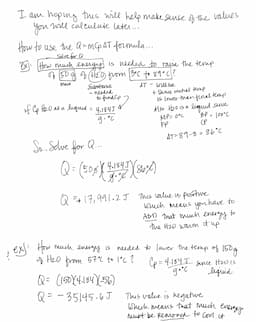 I am hoping this will help make sense of the values
you will calculate later...
How to use the q=mCpΔT formula...
Solve for Q
Ex) How much energy is needed to raise the temp
of 50g of H2O from 3°C to 89°C?
mass
Substance
- needed
to find Cp
ΔT - will be
+ since initial temp
is lower than final temp
if Cp H2O as a liquid = 4.184 J
g·°C
Also H2O is a liquid since
MP = 0°C BP = 100°C
FP CP
ΔT = 89-3 = 86°C
So, Solve for Q...
Q = (50g)(4.184 J / g·°C)(86°C)
Q = +17,991.2 J This value is positive
which means you have to
ADD that much energy to
the H2O warm it up
ex) How much energy is needed to lower the temp of 150g
of H2O from 57°C to 1°C? Cp = 4.184 J since H2O is
g·°C liquid
Q = (150)(4.184)(-56)
Q = -35145.6 J This value is negative
which means that much energy
must be REMOVED to cool it